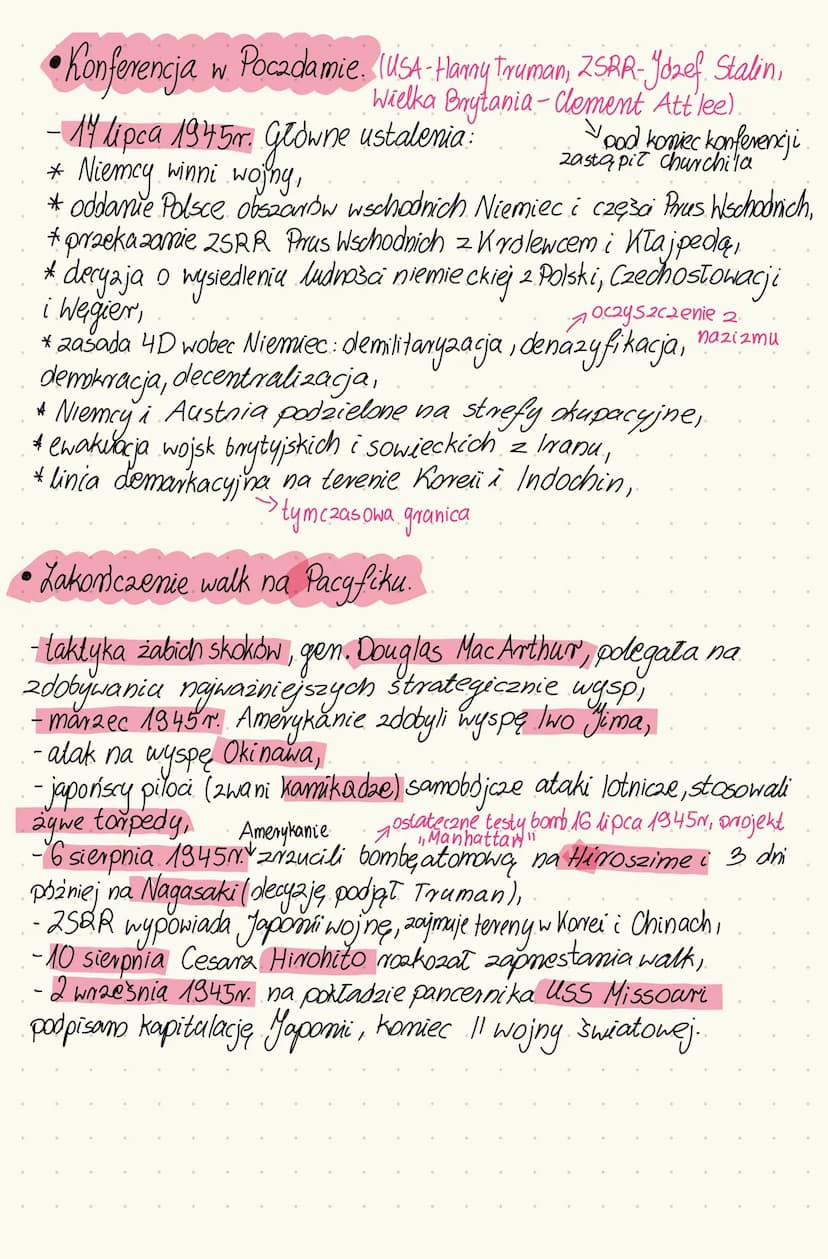 • Konferencja w Poczdamie. (USA-Harry Truman, ZSRR-Józef Stalin,
Wielka Brytania-Clement Attlee)
- 17 lipca 1945r. Główne ustalenia:
pod koniec konferencji
zastąpił churchila
* Niemcy winni wojny,
* oddanie Polsce obszarów wschodnich Niemiec i części Prus Wschodnich,
* przekazanie ZSRR Prus Wschodnich z Królewcem i Kłajpedą,
* decyzja o wysiedleniu ludności niemieckiej z Polski, Czechosłowacji
i Węgier,
oczyszczenie z
nazizmu
* zasada 4D wobec Niemiec: demilitaryzacja, denazyfikacja,
demokracja, decentralizacja,
* Niemcy i Austria podzielone na strefy okupacyjne,
* ewakuacja wojsk brytyjskich i sowieckich z Iranu,
* linia demarkacyjna na terenie Korei i Indochin,
tymczasowa granica
• Zakończenie walk na Pacyfiku.
- taktyka żabich skoków, gen. Douglas MacArthur, polegała na
zdobywaniu najważniejszych strategicznie wysp,
- marzec 1945r. Amerykanie zdobyli wyspę Iwo Jima,
- atak na wyspę Okinawa,
- japońscy piloci (zwani kamikadze) samobójcze ataki lotnicze, stosowali
żywe torpedy,
ostateczne testy bomb 16 lipca 1945r, projekt
„Manhattan"
Amerykanie
- 6 sierpnia 1945r. zrzucili bombę atomową na Hiroszime i 3 dni
później na Nagasaki (decyzję podjął Truman),
- ZSRR wypowiada Japonii wojnę, zajmuje tereny w Korei i Chinach,
- 10 sierpnia Cesarz Hirohito rozkozał zaprzestania walk,
- 2 września 1945r. na pokładzie pancernika USS Missouri
podpisano kapitulację Japonii, koniec II wojny światowej.